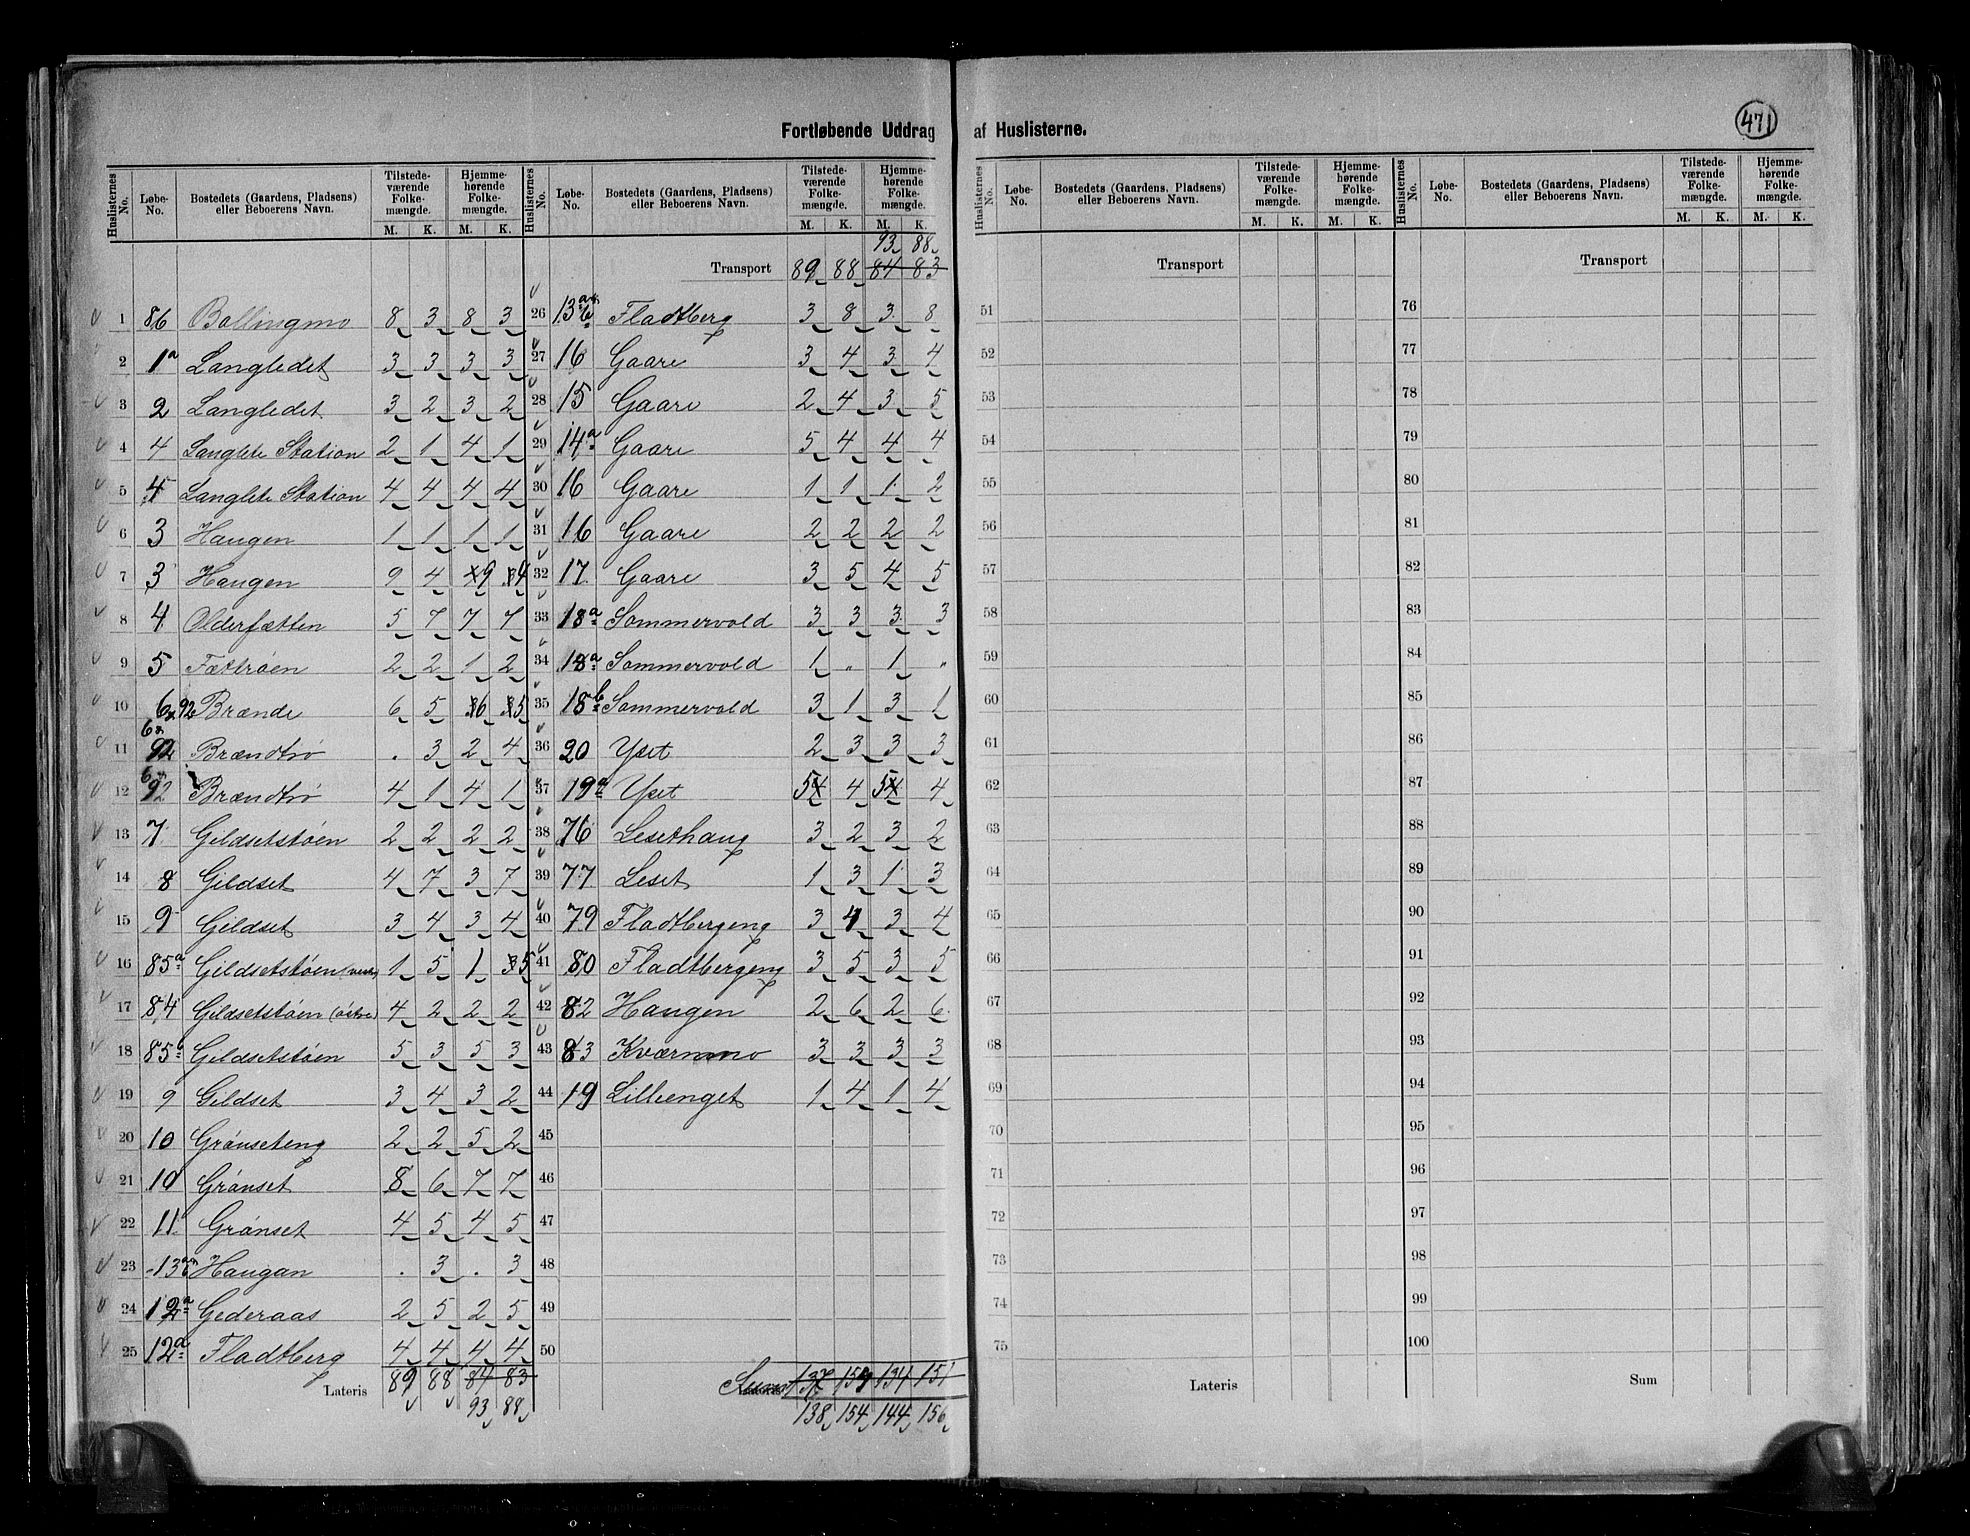 Fortløbende Uddrag af Huslisterne.
471
Huslisternes No. | Løbe-No. | Bostedets (Gaardens, Pladsens) eller Beboerens Navn. | Tilstedeværende Folkemængde. M. K. | Hjemmehørende Folkemængde. M. K.
1 86 Bollingmo 8 3 8 3
2 1a Langledet 3 3 3 3
3 2 Langledet 3 2 3 2
4 4 Langlete Station 2 1 4 1
5 4 Langlete Station 4 4 4 4
6 3 Haugen 1 1 1 1
7 3 Haugen 9 4 9 4
8 4 Olderfætten 5 7 7 7
9 5 Fættrøen 2 2 1 2
10 6 & 92 Brænde 6 5 6 5
11 6 & 92 Brændtrø . 3 2 4
12 6 & 92 Brændtrø 4 1 4 1
13 7 Gildsetstøen 2 2 2 2
14 8 Gildset 4 7 3 7
15 9 Gildset 3 4 3 4
16 85a Gildsetstøen 1 5 1 5
17 84 Gildsetstøen (østre) 4 2 2 2
18 85a Gildsetstøen 5 3 5 3
19 9 Gildset 3 4 3 2
20 10 Grønseteng 2 2 5 2
21 10 Grønset 8 6 7 7
22 11 Grønset 4 5 4 5
23 13 Haugan . 3 . 3
24 12a Gederaas 2 5 2 5
25 12a Fladtberg 4 4 4 4
Lateris 89 88 84 83
93 88
Huslisternes No. | Løbe-No. | Bostedets (Gaardens, Pladsens) eller Beboerens Navn. | Tilstedeværende Folkemængde. M. K. | Hjemmehørende Folkemængde. M. K.
93 88
Transport 89 88 84 83
26 13 Fladtberg 3 8 3 8
27 16 Gaare 3 4 3 4
28 15 Gaare 2 4 3 5
29 14a Gaare 5 4 4 4
30 16 Gaare 1 1 1 2
31 16 Gaare 2 2 2 2
32 17 Gaare 3 5 4 5
33 18a Sommervold 3 3 3 3
34 18a Sommervold 1 . 1 .
35 18b Sommervold 3 1 3 1
36 20 Yset 2 3 3 3
37 19a Yset 5 4 5 4
38 76 Lesethaug 3 2 3 2
39 77 Leset 1 3 1 3
40 79 Fladtbergeng 3 4 3 4
41 80 Fladtbergeng 3 5 3 5
42 82 Haugen 2 6 2 6
43 83 Kværnmo 3 3 3 3
44 19 Lillienget 1 4 1 4
45
46
47
48
49
50
Summa 137 154 134 151
138 154 144 156
Huslisternes No. | Løbe-No. | Bostedets (Gaardens, Pladsens) eller Beboerens Navn. | Tilstedeværende Folkemængde. M. K. | Hjemmehørende Folkemængde. M. K.
Transport
51
52
53
54
55
56
57
58
59
60
61
62
63
64
65
66
67
68
69
70
71
72
73
74
75
Lateris
Huslisternes No. | Løbe-No. | Bostedets (Gaardens, Pladsens) eller Beboerens Navn. | Tilstedeværende Folkemængde. M. K. | Hjemmehørende Folkemængde. M. K.
Transport
76
77
78
79
80
81
82
83
84
85
86
87
88
89
90
91
92
93
94
95
96
97
98
99
100
Sum